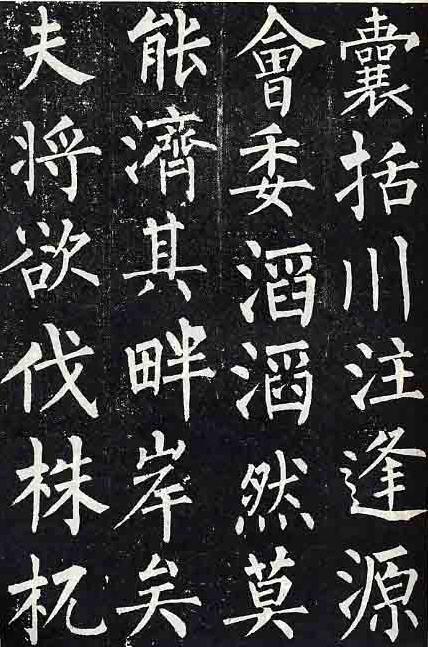 囊括川注逢源
會委滔滔然莫
能濟其畔岸矣
夫将欲伐株杌